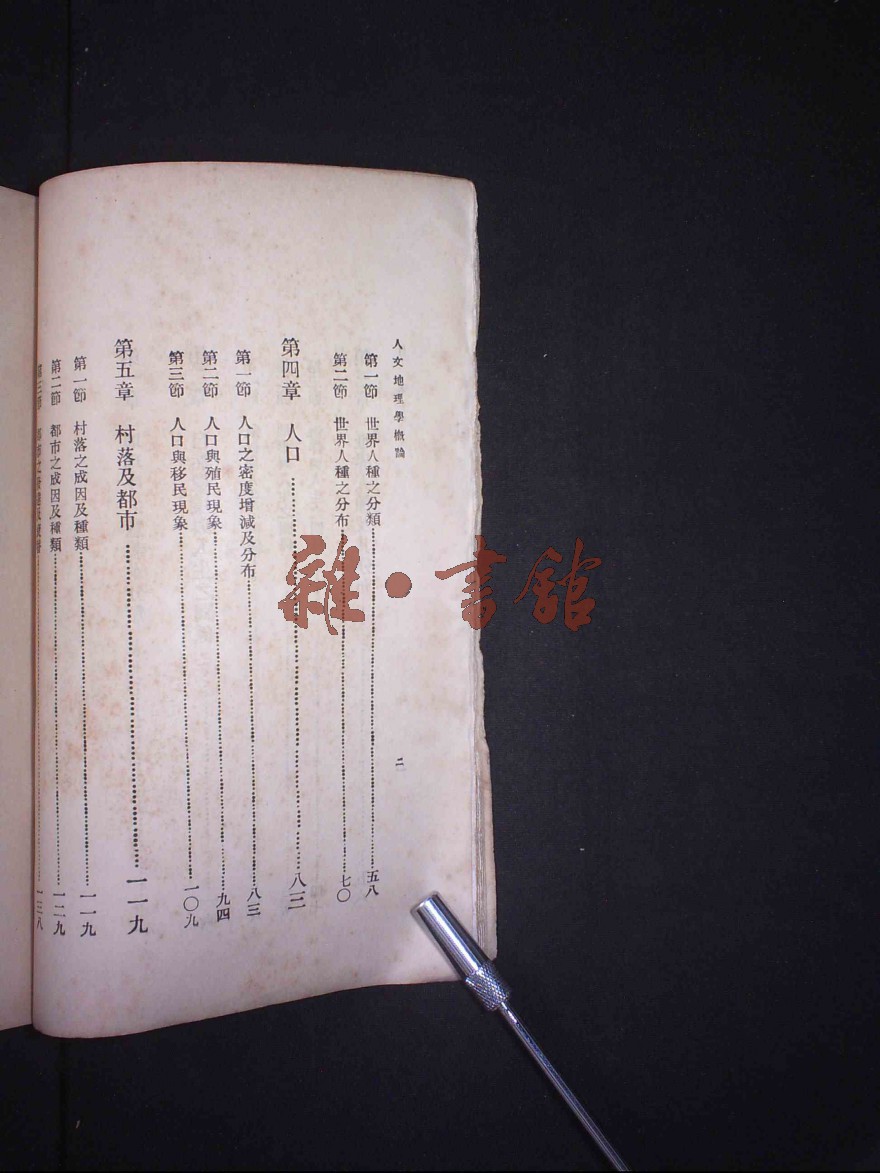 人文地理學概論
二
第一節 世界人種之分類 五八
第二節 世界人種之分布 七〇
第四章 人口 八三
第一節 人口之密度增減及分布 八三
第二節 人口與殖民現象 九四
第三節 人口與移民現象 一〇九
第五章 村落及都市 一一九
第一節 村落之成因及種類 一一九
第二節 都市之成因及種類 一二九
第三節 都市之發達及 一三八
雜·書館